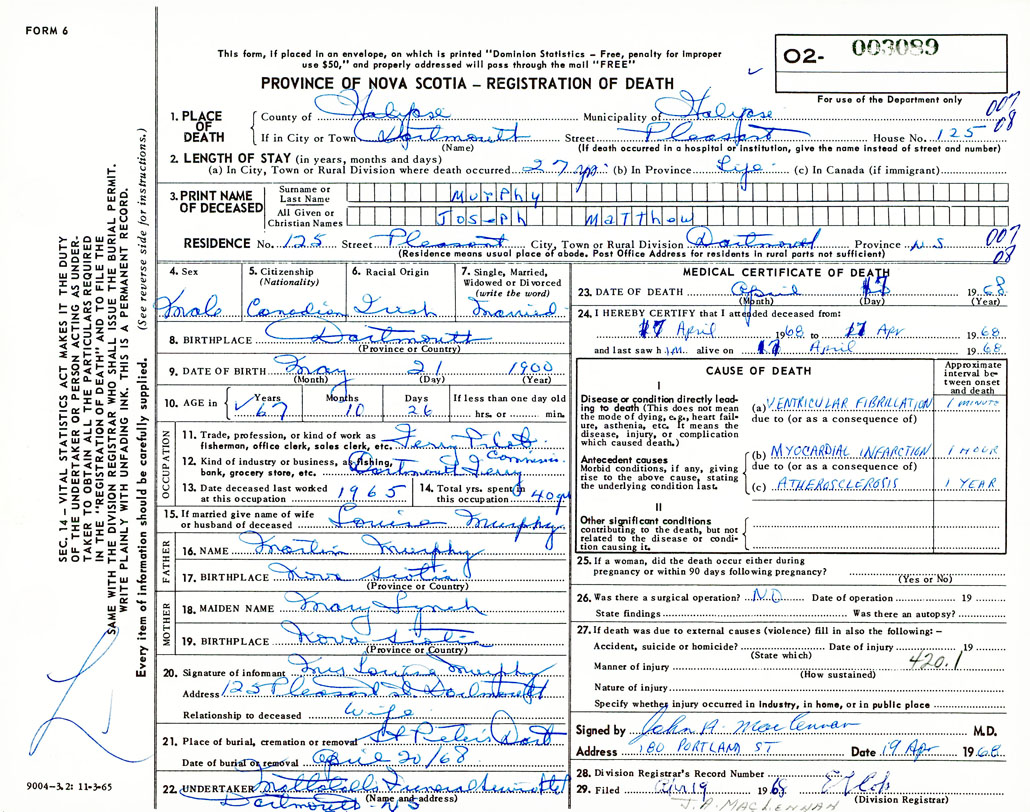 FORM 6
This form, if placed in an envelope, on which is printed "Dominion Statistics – Free, penalty for improper
use $50," and properly addressed will pass through the mail "FREE"
O2- 003089
For use of the Department only
PROVINCE OF NOVA SCOTIA – REGISTRATION OF DEATH
007
08
1. PLACE OF DEATH
County of Halifax Municipality of Halifax
If in City or Town Dartmouth Street Pleasant House No. 125
(Name) (If death occurred in a hospital or institution, give the name instead of street and number)
2. LENGTH OF STAY (in years, months and days)
(a) In City, Town or Rural Division where death occurred 27 yrs (b) In Province Life (c) In Canada (if immigrant)
3. PRINT NAME OF DECEASED
Surname or Last Name Murphy
All Given or Christian Names Joseph Matthew
RESIDENCE No. 125 Street Pleasant City, Town or Rural Division Dartmouth Province N.S
(Residence means usual place of abode. Post Office Address for residents in rural parts not sufficient)
007
08
4. Sex Male
5. Citizenship (Nationality) Canadian
6. Racial Origin Irish
7. Single, Married, Widowed or Divorced (write the word) Married
8. BIRTHPLACE Dartmouth
(Province or Country)
9. DATE OF BIRTH May 21 1900
(Month) (Day) (Year)
10. AGE in Years 67 Months 10 Days 26 If less than one day old hrs. or min.
OCCUPATION
11. Trade, profession, or kind of work as fisherman, office clerk, sales clerk, etc. Ferry Pilot
12. Kind of industry or business, as fishing, bank, grocery store, etc. Dartmouth Ferry Commis.
13. Date deceased last worked at this occupation 1965
14. Total yrs. spent in this occupation 40 yr
15. If married give name of wife or husband of deceased Louise Murphy
FATHER
16. NAME Martin Murphy
17. BIRTHPLACE Nova Scotia
(Province or Country)
MOTHER
18. MAIDEN NAME Mary Lynch
19. BIRTHPLACE Nova Scotia
(Province or Country)
20. Signature of informant Mrs Louise Murphy
Address 125 Pleasant St. Dartmouth
Relationship to deceased Wife
21. Place of burial, cremation or removal St Peters Dart
Date of burial or removal April 20/68
22. UNDERTAKER Funeral
Dartmouth N.S
(Name and address)
MEDICAL CERTIFICATE OF DEATH
23. DATE OF DEATH April 17 1968
(Month) (Day) (Year)
24. I HEREBY CERTIFY that I attended deceased from:
17 April 1968 to 17 Apr 1968
and last saw him alive on 17 April 1968
CAUSE OF DEATH
Approximate interval between onset and death
I
Disease or condition directly leading to death (This does not mean the mode of dying, e.g., heart failure, asthenia, etc. It means the disease, injury, or complication which caused death.)
(a) VENTRICULAR FIBRILLATION 1 MINUTE
due to (or as a consequence of)
Antecedent causes
Morbid conditions, if any, giving rise to the above cause, stating the underlying condition last.
(b) MYOCARDIAL INFARCTION 1 HOUR
due to (or as a consequence of)
(c) ATHEROSCLEROSIS 1 YEAR
II
Other significant conditions contributing to the death, but not related to the disease or condition causing it.
25. If a woman, did the death occur either during pregnancy or within 90 days following pregnancy?
(Yes or No)
26. Was there a surgical operation? NO Date of operation 19
State findings Was there an autopsy?
27. If death was due to external causes (violence) fill in also the following: –
Accident, suicide or homicide? Date of injury 19
(State which)
Manner of injury 420.1
(How sustained)
Nature of injury
Specify whether injury occurred in Industry, in home, or in public place
Signed by John A. MacLennan M.D.
Address 180 PORTLAND ST Date 19 Apr 1968
28. Division Registrar's Record Number
29. Filed Apr 19 1968
(Division Registrar)
J. A. MACLENNAN
SEC. 14 – VITAL STATISTICS ACT MAKES IT THE DUTY
OF THE UNDERTAKER OR PERSON ACTING AS UNDER-
TAKER TO OBTAIN ALL THE PARTICULARS REQUIRED
IN THE "REGISTRATION OF DEATH" AND TO FILE THE
SAME WITH THE DIVISION REGISTRAR WHO SHALL ISSUE THE BURIAL PERMIT.
WRITE PLAINLY WITH UNFADING INK. THIS IS A PERMANENT RECORD.
Every item of information should be carefully supplied. (See reverse side for instructions.)
9004-3.2: 11-3-65